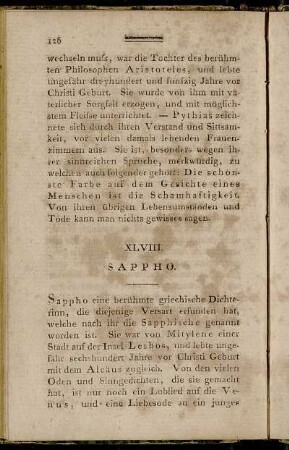 126
wechseln muss, war die Tochter des berühm-
ten Philosophen Aristoteles, und lebte
ungefähr dreyhundert und funfzig Jahre vor
Christi Geburt. Sie wurde von ihm mit vä-
terlicher Sorgfalt erzogen, und mit möglich-
stem Fleisse unterrichtet. — Pythias zeich-
nete sich durch ihren Verstand und Sittsam-
keit, vor vielen damals lebenden Frauen-
zimmern aus. Sie ist, besonders wegen ih-
rer sinnreichen Sprüche, merkwürdig, zu
welchen auch folgender gehört: Die schön-
ste Farbe auf dem Gesichte eines
Menschen ist die Schamhaftigkeit.
Von ihren übrigen Lebensumständen und
Tode kann man nichts gewisses sagen.
XLVIII.
SAPPHO.
Sappho eine berühmte griechische Dichte-
rinn, die diejenige Versart erfunden hat,
welche nach ihr die Sapphische genannt
worden ist. Sie war von Mitylene einer
Stadt auf der Insel Lesbos, und lebte unge-
fähr sechshundert Jahre vor Christi Geburt
mit dem Alcäus zugleich. Von den vielen
Oden und Sinngedichten, die sie gemacht
hat, ist nur noch ein Loblied auf die Ve-
nus, und eine Liebesode an ein junges